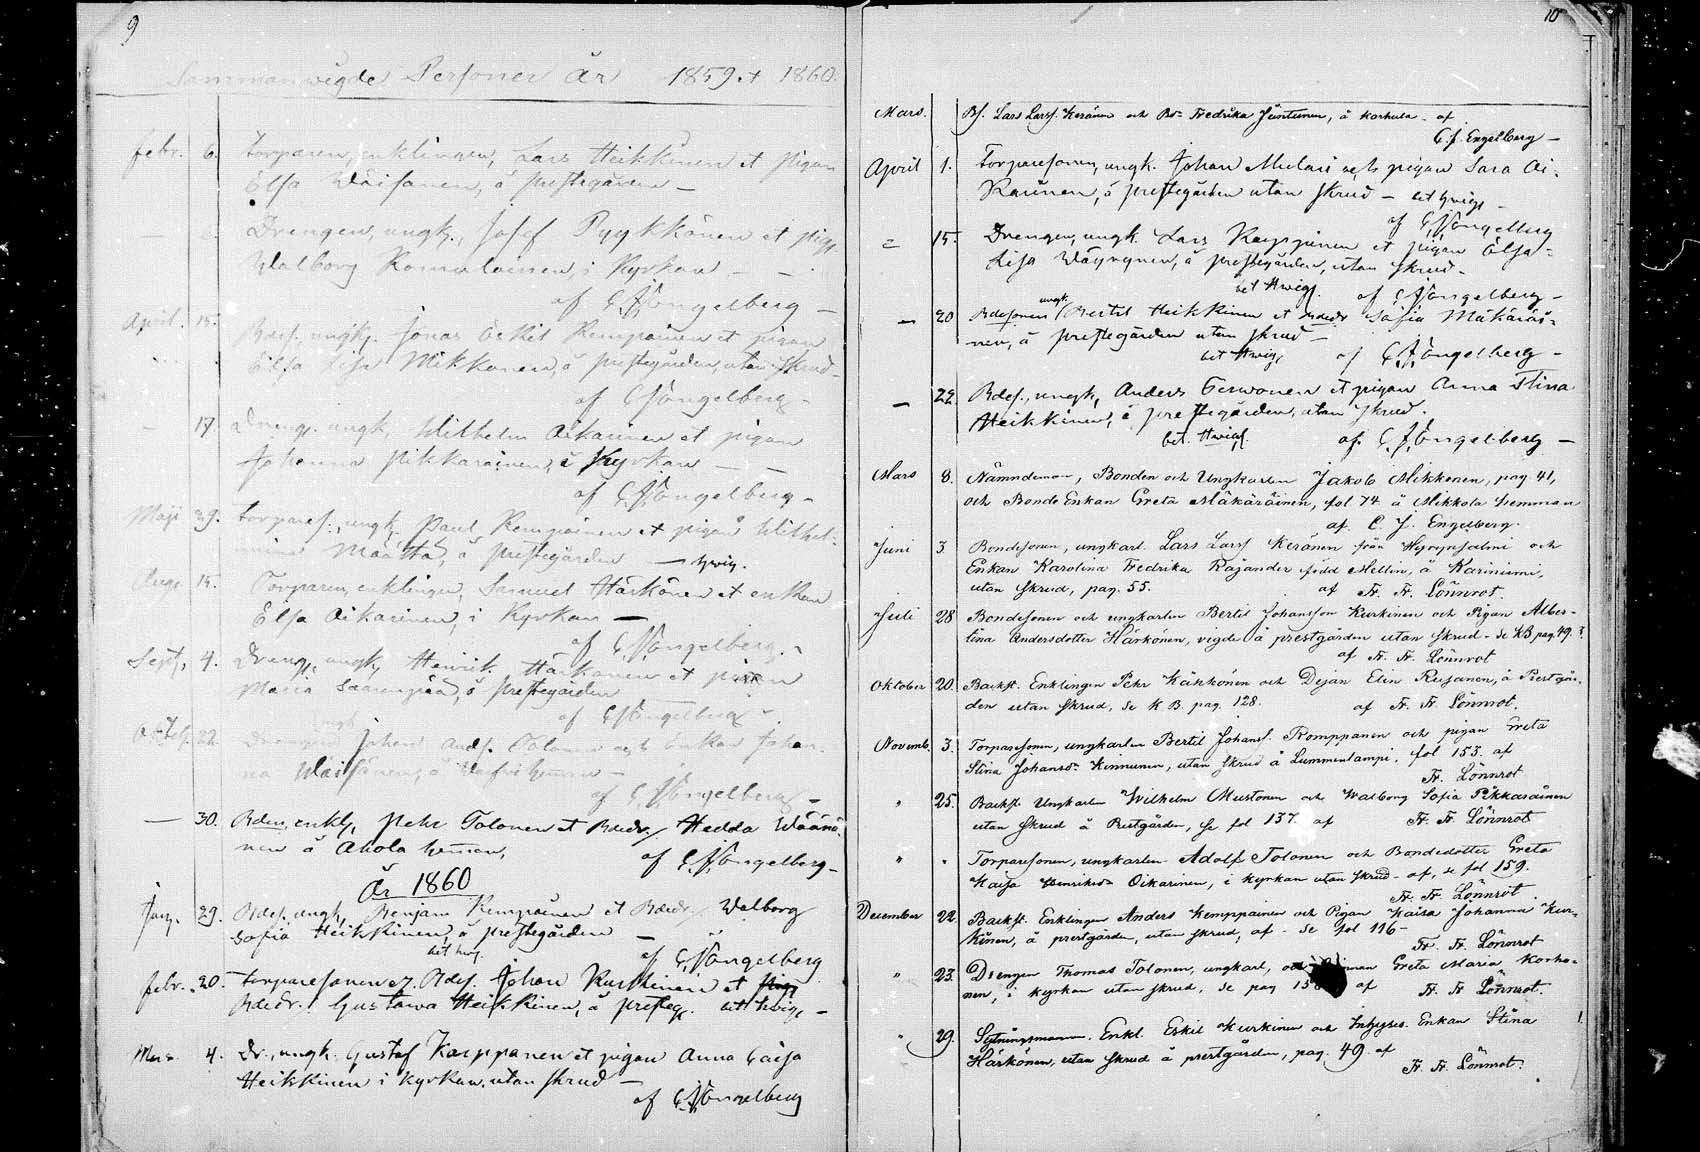 9
Sammanwigde Personer År 1859 et 1860.
febr. 6. Torparen, enklingen, Lars Heikkinen et pigan
Elsa Wäisänen, å prestegården —
— 6. Drengen, ungk., Josef Pyykkönen et pig.
Walborg Romulainen, i Kyrkan —
af C J Engelberg —
April. 15. Bdes. ungk. Jonas Eskil Kemppainen et pigan
Elsa Lisa Mikkonen, å prestegården, utan skrud —
af C J Engelberg —
— 17. Dreng. ungk. Wilhelm Aikarinen et pigan
Johanna Pikkarainen, i Kyrkan —
af C J Engelberg —
Maji 29. Torpares., ungk. Paul Kemppainen et pigan Wilhel-
mina Määttä, å prestegården — hwig.
Aug. 15. Torparen, enklingen, Samuel Härkönen et enkan
Elsa Aikarinen, i Kyrkan —
af C J Engelberg —
Sept. 4. Dreng. ungk. Henrik Härkönen et pigan
Maria Saarenpää, å prestegården
af C J Engelberg
22. Drengen Johan Ands. Tolonen och enkan Johan-
na Wäisänen, å
af C J Engelberg —
— 30. Bden, enkl., Pehr Tolonen et Bdedr. Hedda Wäänä-
nen å Ahola heman,
af C J Engelberg —
År 1860
Jan. 29. Bdes. ungk. Benjam Kemppainen et Bdedr. Walborg
Sofia Heikkinen, å prestegården —
bet hwg.
af C J Engelberg
febr. 20. Torparesonen, Bdes. Johan Kurkinen et
Bdedr. Gustawa Heikkinen, å presteg. bet hwig. —
Mars 4. Dr., ungk. Gustaf Karppanen et pigan Anna Caisa
Heikkinen i kyrkan, utan skrud —
af C J Engelberg
10
Mars. Bs. Lars Larss. Keränen och Bdr Fredrika Juntunen, å Korhula af
C. J. Engelberg —
April 1. Torparesonen, ungk. Johan Mulari och pigan Sara Ai-
karinen, å prestegården utan skrud — bet hwigs —
af C J Engelberg
= 15. Drengen, ungk. Lars Karppinen et pigan Elsa
Lisa Wäyrynen, å prestegården, utan skrud —
bet Hwigs. af C J Engelberg —
ungk.
— 20 Bdesonen Bertil Heikkinen et Bdedr Sofia Mäkäräi-
nen, å prestegården utan skrud —
bet Hwig. af C J Engelberg —
— 22. Bdes., ungk. Anders Terwonen et pigan Anna Stina
Heikkinen, å prestegården, utan skrud.
bet. Hwigs. af C J Engelberg —
Mars 8. Nämndeman, Bonden och Ungkarlen Jakob Mikkonen, pag 41,
och Bonde Enkan Greta Mäkäräinen, fol 74 å Mikkola hemman
af C. J. Engelberg.
Juni 3 Bondesonen, ungkarl. Lars Larss Keränen från Hyrynsalmi och
Enkan Karolina Fredrika Rajander född Mellin, å Kariniemi,
utan skrud, pag. 55. af Fr. Fr. Lönnrot.
Juli 28 Bondesonen och ungkarlen Bertil Johansson Kurkinen och Pigan Alber-
tina Andersdotter Härkönen, vigde å prestgården utan skrud - Se KB pag. 49.
af Fr. Fr. Lönnrot
Oktober 20. Backst. Enklingen Pehr Käkkönen och Dejan Elin Rusanen, å Prestgår-
den utan skrud, Se K B. pag. 128. af Fr. Fr. Lönnrot.
Novemb. 3. Torparesonen, ungkarlen Bertil Johanss. Romppanen och pigan Greta
Stina Johansdr Kinnunen, utan skrud å Lummenlampi, fol 153. af
Fr. Lönnrot
" 25. Backst. Ungkarlen Wilhelm Mustonen och Walborg Sofia Pikkarainen
utan skrud å Prestgården, Se fol 137. af Fr. Fr. Lönnrot
" " Torparesonen, ungkarlen Adolf Tolonen och Bondedotter Greta
Kaisa Henriksdr Oikarinen, i kyrkan utan skrud - af, se fol 159.
Fr. Fr. Lönnrot
December 22. Backst. Enklingen Anders Kemppainen och Pigan Kaisa Johanna Kur-
kinen, å prestgården, utan skrud, af - Se fol 116 -
Fr. Fr. Lönnrot
" 23. Drengen Thomas Tolonen, ungkarl, och Greta Maria Korho-
nen, i kyrkan utan skrud, Se pag af Fr. Fr. Lönnrot.
" 29. Sytningsmannen Enkl. Eskil Kurkinen och Inhyses Enkan Stina
Härkönen, utan skrud å prestgården, pag. 49. af
Fr. Fr. Lönnrot.